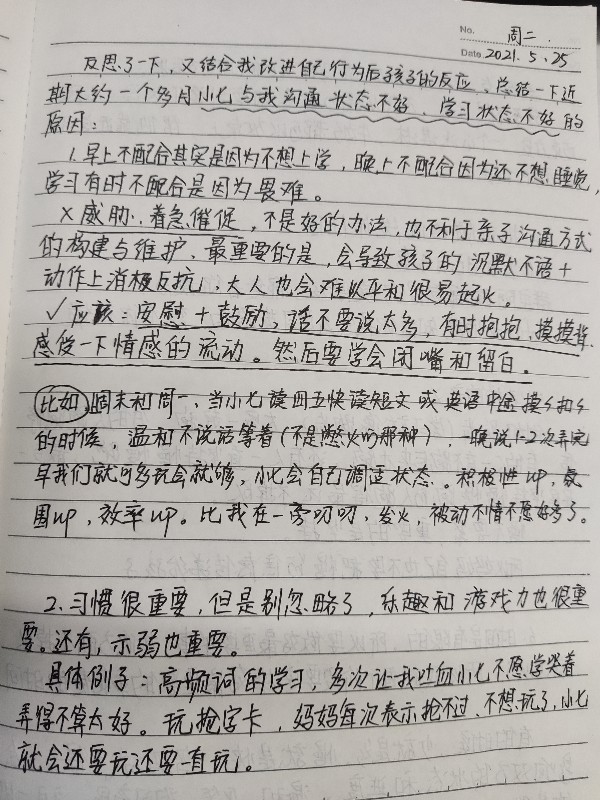 No. 周二.
Date 2021.5.25
反思了一下，又结合我改进自己行为后孩子的反应、总结一下近
期大约一个多月小七与我沟通状态不好、学习状态不好的
原因：
1.早上不配合其实是因为不想上学，晚上不配合因为还不想睡觉，
学习有时不配合是因为畏难。
× 威胁、着急催促，不是好的办法，也不利于亲子沟通方式
的构建与维护、最重要的是，会导致孩子的沉默不语＋
动作上消极反抗，大人也会难以平和很易起火。
√ 应该：安慰＋鼓励，话不要说太多，有时抱抱、摸摸背、
感受一下情感的流动。然后要学会闭嘴和留白。
比如 周末和周一、当小七读四五快读短文或英语中途摸摸扣扣
的时候，温和不说话等着（不是憋火的那种），一晚说1-2次弄完
早我们就可多玩会就够，小七会自己调适状态。积极性up，氛
围up，效率up。比我在一旁叨叨，发火，被动不情不愿好多了。
2.习惯很重要，但是别忽略了，乐趣和游戏力也很重
要。还有，示弱也重要。
具体例子：高频词的学习，多次让我吐血小七不愿学哭着
弄得不算太好。玩抢字卡，妈妈每次表示抢不过、不想玩了，小七
就会还要玩还要一直玩。